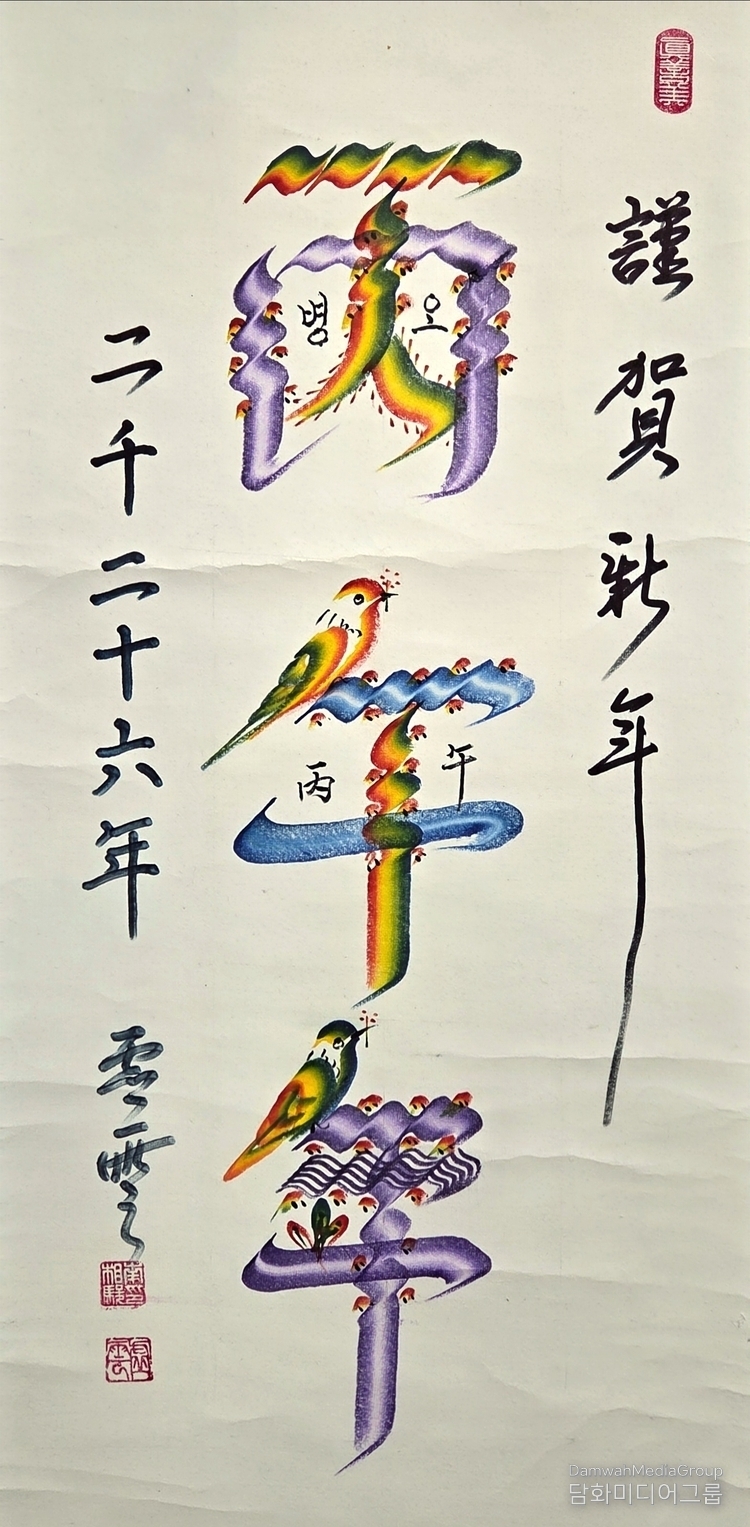 謹賀新年
丙午年
병오
丙午
二千二十六年
DamwanMediaGroup
담화미디어그룹